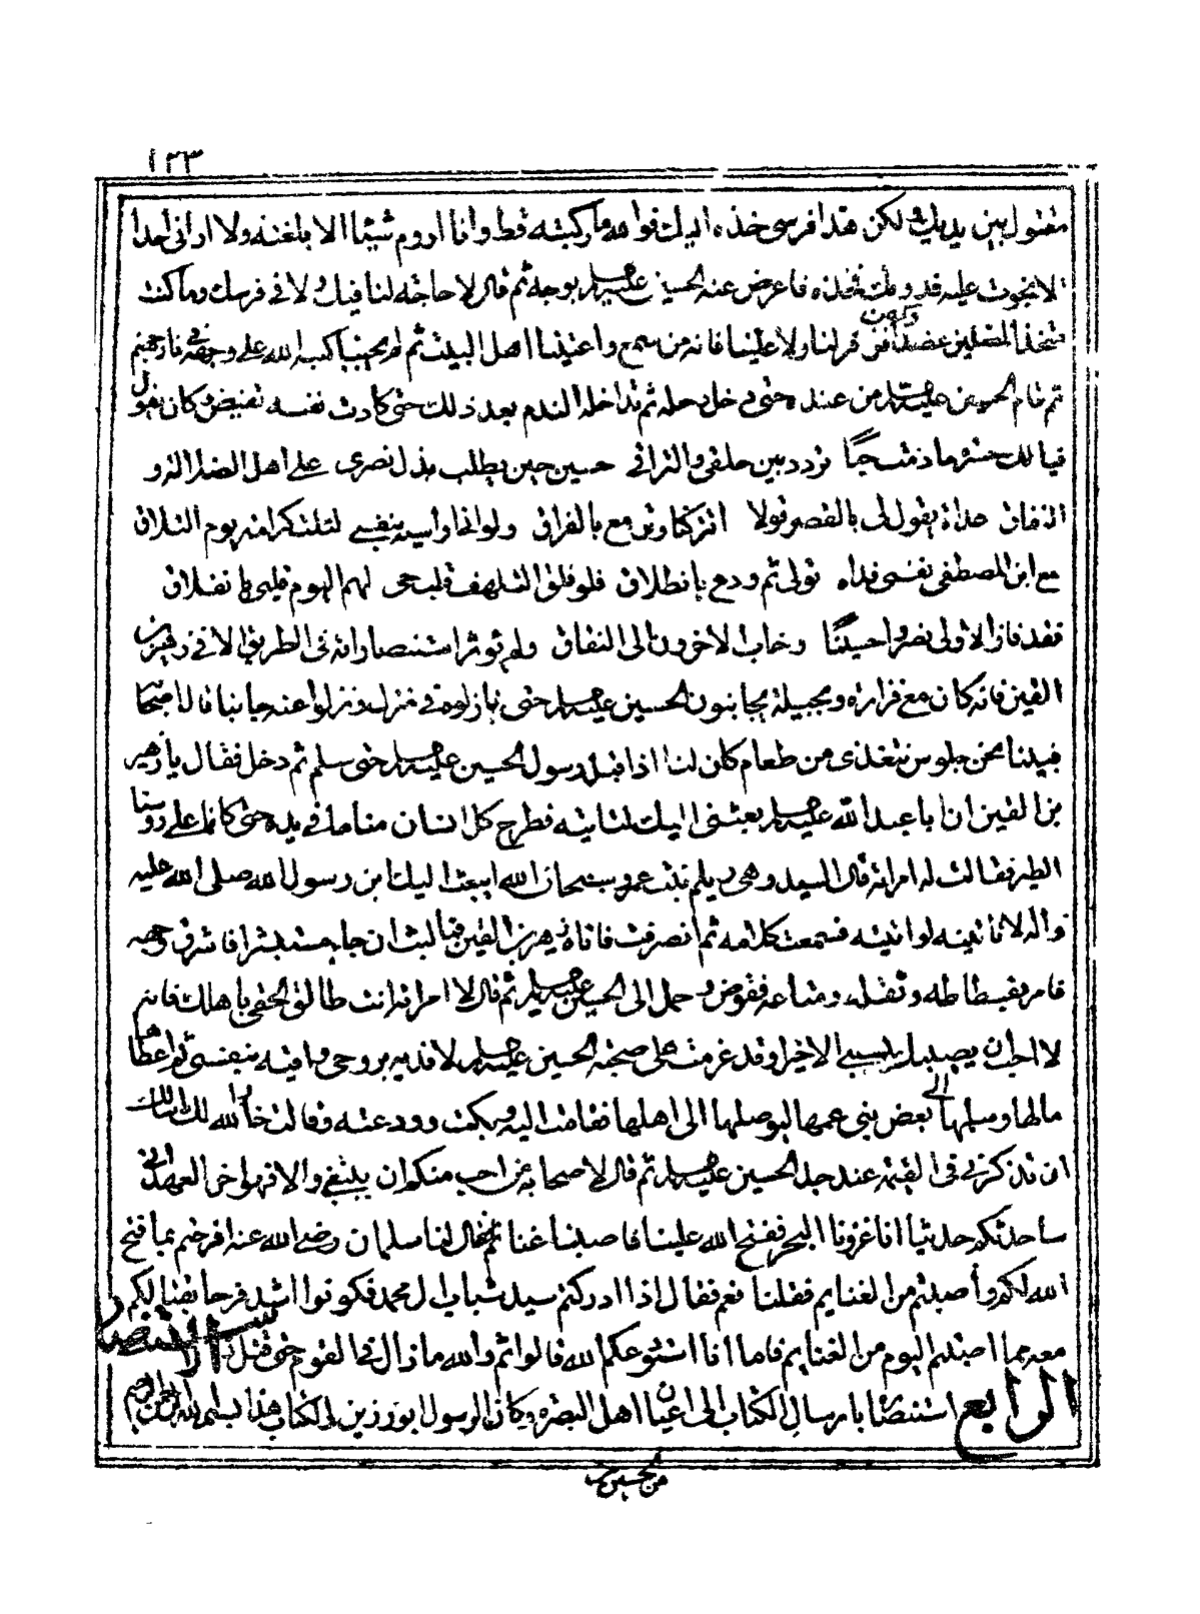 ١٣٣
مقتول بين يديك لكن هذا فرسى خذه اليك فوالله ما ركبته قط وانا اروم شيئا الا بلغته ولا ارادنى احد
الا نجوت عليه فدونك فخذه فاعرض عنه الحسين عليه السلام بوجهه ثم قال لا حاجة لنا فيك ولا فى فرسك وما كنت
متخذ المضلين عضدا ولكن فر فلا لنا ولا علينا فانه من سمع واعيتنا اهل البيت ثم لم يجبنا كبه الله على وجهه فى نار جهنم
ثم قام الحسين عليه السلام من عنده حتى دخل رحله ثم تداخله الندم بعد ذلك حتى كادت نفسه تفيض وكان يقول
فيا لك حسرة ما دمت حيا تردد بين حلقى والتراقى حسين حين يطلب بذل نصرى على اهل الضلالة و
النفاق غداة يقول لى بالقصر قولا اتتركنا وتزمع بالفراق ولو انى اواسيه بنفسى لنلت كرامة يوم التلاق
مع ابن المصطفى نفسى فداه تولى ثم ودع بانطلاق فلو فلق التلهف قلب حى لهم اليوم قلبى بانفلاق
فقد فاز الاولى نصروا حسينا وخاب الاخرون الى النفاق ولم تؤثر استنصاراته فى الطريق الا فى زهير بن
القين فانه كان مع فزارة وبجيلة يجانبون الحسين عليه السلام حتى نازلوه فى منزل ونزلوا عنه جانبا قال اصحابه
فبينا نحن جلوس نتغذى من طعام كان لنا اذ اقبل رسول الحسين عليه السلام حتى سلم ثم دخل فقال يا زهير
بن القين ان ابا عبد الله عليه السلام بعثنى اليك لتاتيه فطرح كل انسان منا ما فى يده حتى كانما على رؤسنا
الطير فقالت له امراته قال السيد وهى ديلم بنت عمرو سبحان الله ايبعث اليك ابن رسول الله صلى الله عليه
واله لا تاتينه لو اتيته فسمعت كلامه ثم انصرفت فاتاه زهير بن القين فما لبث ان جاء مستبشرا قد اشرق وجهه
فامر بفسطاطه وثقله ومتاعه فقوض وحمل الى الحسين عليه السلام ثم قال لامراته انت طالق الحقى باهلك فانى
لا احب ان يصيبك بسببى الا خير وقد عزمت على صحبة الحسين عليه السلام لافديه بروحى واقيه بنفسى ثم اعطاها
مالها وسلمها الى بعض بنى عمها ليوصلها الى اهلها فقامت اليه وبكت وودعته وقالت خار الله لك اسئلك
ان تذكرنى فى القيمة عند جد الحسين عليه السلام ثم قال لاصحابه من احب منكم ان يتبعنى والا فهو اخر العهد انى
ساحدثكم حديثا انا غزونا البحر ففتح الله علينا فاصبنا غنائم فقال لنا سلمان رضى الله عنه افرحتم بما فتح
الله لكم واصبتم من الغنايم فقلنا نعم فقال اذا ادركتم سيد شباب ال محمد فكونوا اشد فرحا بقتالكم
معه مما اصبتم اليوم من الغنايم فاما انا استودعكم الله قالوا ثم والله ما زال فى القوم حتى قتل الاستنصار
الرابع استنصاره بارسال الكتاب الى اعيان اهل البصرة وكان الرسول ابو رزين والكتاب هذا بسم الله الرحمن الرحيم
من الحسين بن